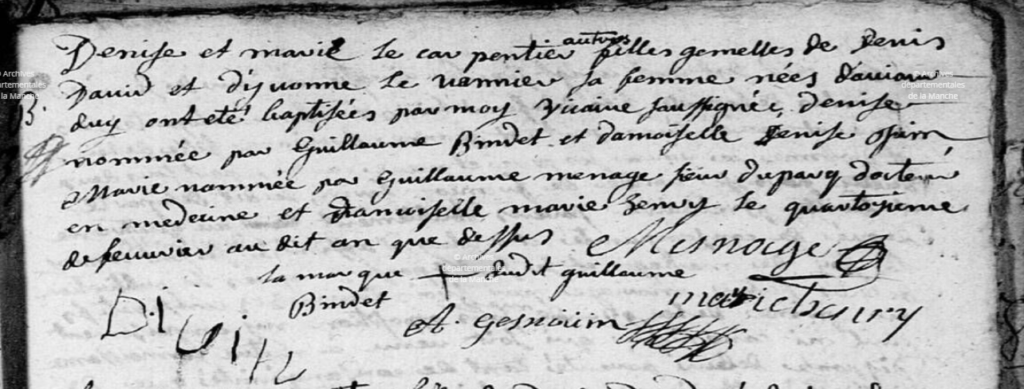 Denise et marie le carpentier autres filles gemelles de Denis
David et d'yvonne le vannier sa femme nées d'aviour
duy ont eté baptisées par moy vicaire saussigné, denise
nommée par Guillaume Bindet et damoiselle Denise
Marie nommée par Guillaume menage sieur duparq docteur
en medecine et damoiselle marie henry le quatorzieme
de fevvrier au dit an que dessus Mesnage
la marque + dudit guillaume
Bindet marie haury